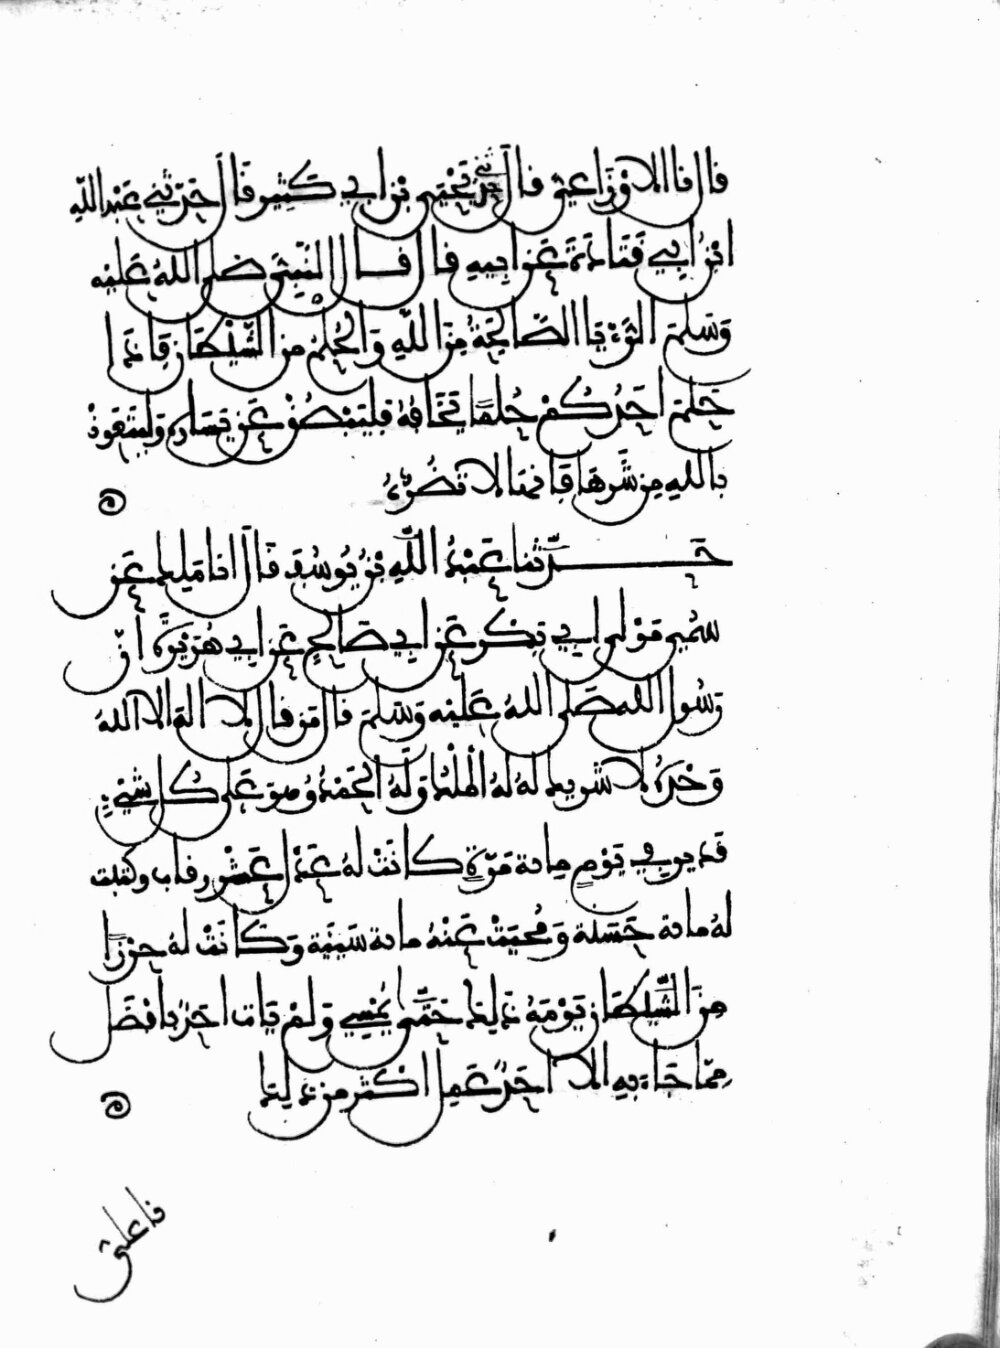 قال نا الاوْزَاعي قال حَدثني يَحْيَى بْن أبِي كَثِير قَالَ حَدّثني عَبْد اللهِ
ابْن أبِي قَتَادَةَ عَن ابِيهِ قال قال النَّبِيّ صلى اللهُ عَليْه
وَسَلمَ الرُّؤْيَا الصَّالِحَةُ مِنَ اللهِ وَالحُلمُ من الشَّيْطَانِ فَإِذَا
حَلمَ أحَدُكُمْ حُلمًا يَخَافُهُ فليَبْصُقْ عَن يَسَارِه وَليَتَعَوذْ
بالله مِن شَرهَا فَإنها لا تَضُرُّهُ
حَدَّثنا عَبْدُ اللهِ بْنُ يُوسُف قَالَ انا مَلِك عَن
سُمَيّ مَوْلى أبِي بَكْر عَن أبِي صَالِحٍ عَن أبِي هُرَيْرَةَ أنّ
رَسُول الله صَلى اللهُ عَليْه وَسَلمَ قال مَن قال لا اله الا اللهُ
وَحْدَهُ لا شَرِيكَ لَهُ لهُ المُلْكُ وَلَهُ الحَمْدُ وهوَ عَلى كُل شَيْءٍ
قَدير في يَوْمٍ مِائة مَرّةٍ كَانَتْ لهُ عَدْلَ عَشْر رقاب وكتبت
لهُ مائة حَسَنَة وَمُحِيَتْ عَنْهُ مائة سَيِّئة وَكَانَتْ لهُ حِرْزًا
مِنَ الشَّيْطَانِ يَوْمَهُ ذَلِكَ حَتَّى يُمْسِي وَلمْ يَات احَدٌ بافْضَلَ
مِمّا جَاءَ بِهِ الا احَدٌ عَمِلَ اكْثَرَ مِن ذلِكَ
فاعلي